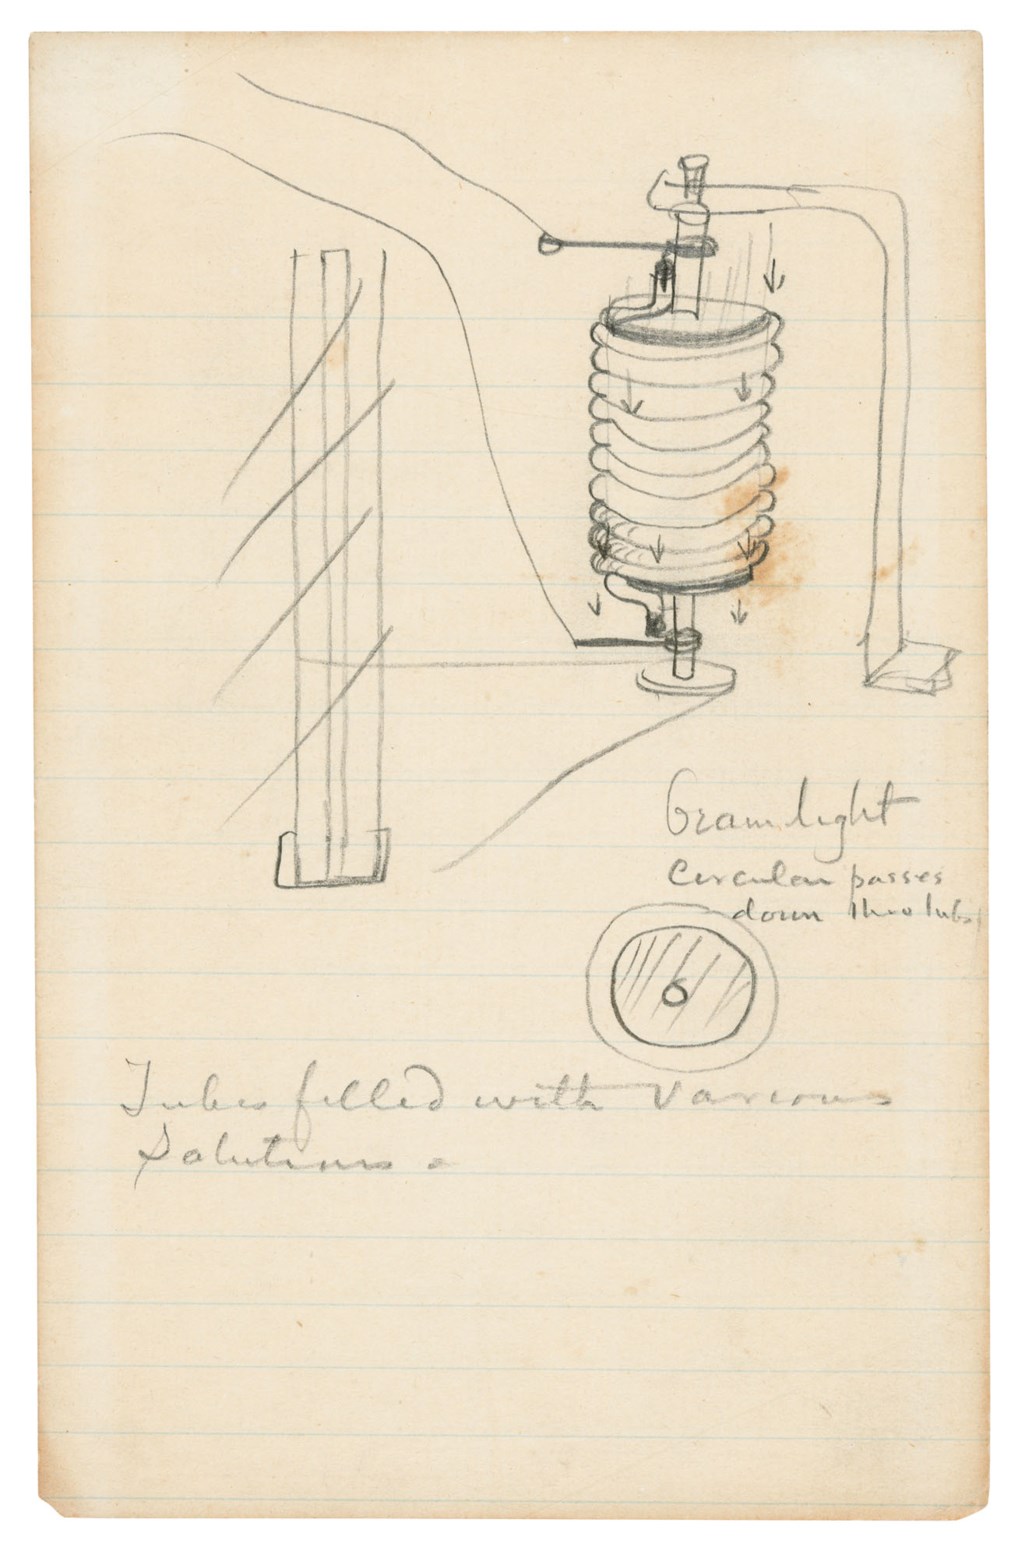 Beam light
Circular passes
down thro tubs
Tubes filled with various
Solutions.